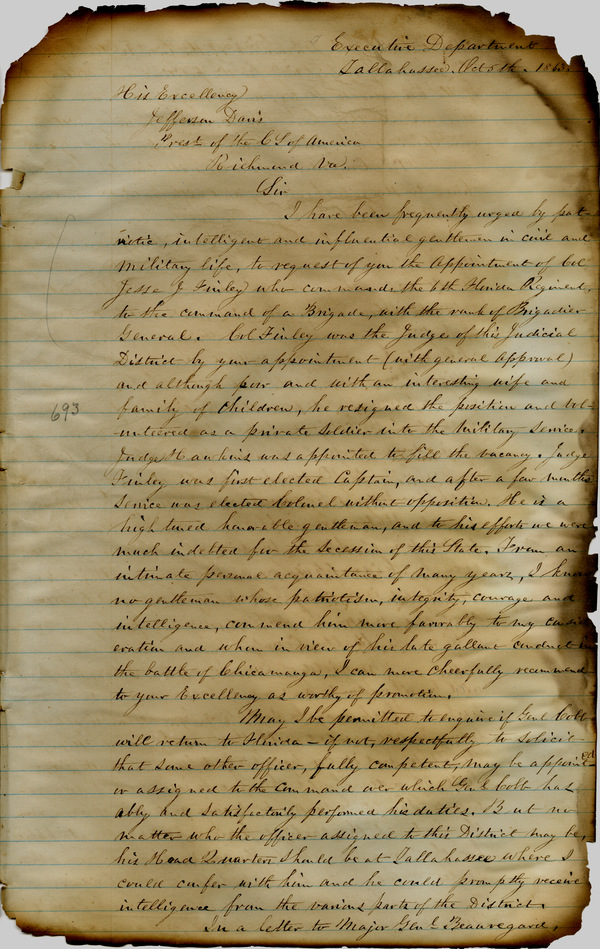 Executive Department
Tallahassee. Oct 5th. 1863.
His Excellency
Jefferson Davis
Prest of the C S of America
Richmond Va.
Sir
I have been frequently urged by pat-
riotic, intelligent and influential gentlemen in civil and
military life, to request of you the appointment of Col
Jesse J Finley who commands the 6th Florida Regiment,
to the command of a Brigade, with the rank of Brigadier
General. Col Finley was the Judge of this Judicial
District by your appointment (with general approval)
and although poor and with an interesting wife and
693
family of children, he resigned the position and vol-
unteered as a private soldier into the Military Service.
Judge Hawkins was appointed to fill the vacancy. Judge
Finley was first elected Captain, and after a few months
Service was elected Colonel without opposition. He is a
high toned honorable gentleman, and to his efforts we were
much indebted for the Secession of this State. From an
intimate personal acquaintance of many years, I know
no gentleman whose patriotism, integrity, courage and
intelligence, commend him more favorably to my consid
eration and whom in view of his late gallant conduct in
the battle of Chicamauga, I can more cheerfully recommend
to your Excellency as worthy of promotion.
May I be permitted to enquire if Genl Cobb
will return to Florida – if not, respectfully to solicit
that some other officer, fully competent, may be appoint-ed
or assigned to the command over which Genl Cobb has
ably and satisfactorily performed his duties. But no
matter who the officer assigned to this District may be,
his Head Quarters should be at Tallahassee where I
could confer with him and he could promptly receive
intelligence from the various parts of the District.
In a letter to Major Genl Beauregard,